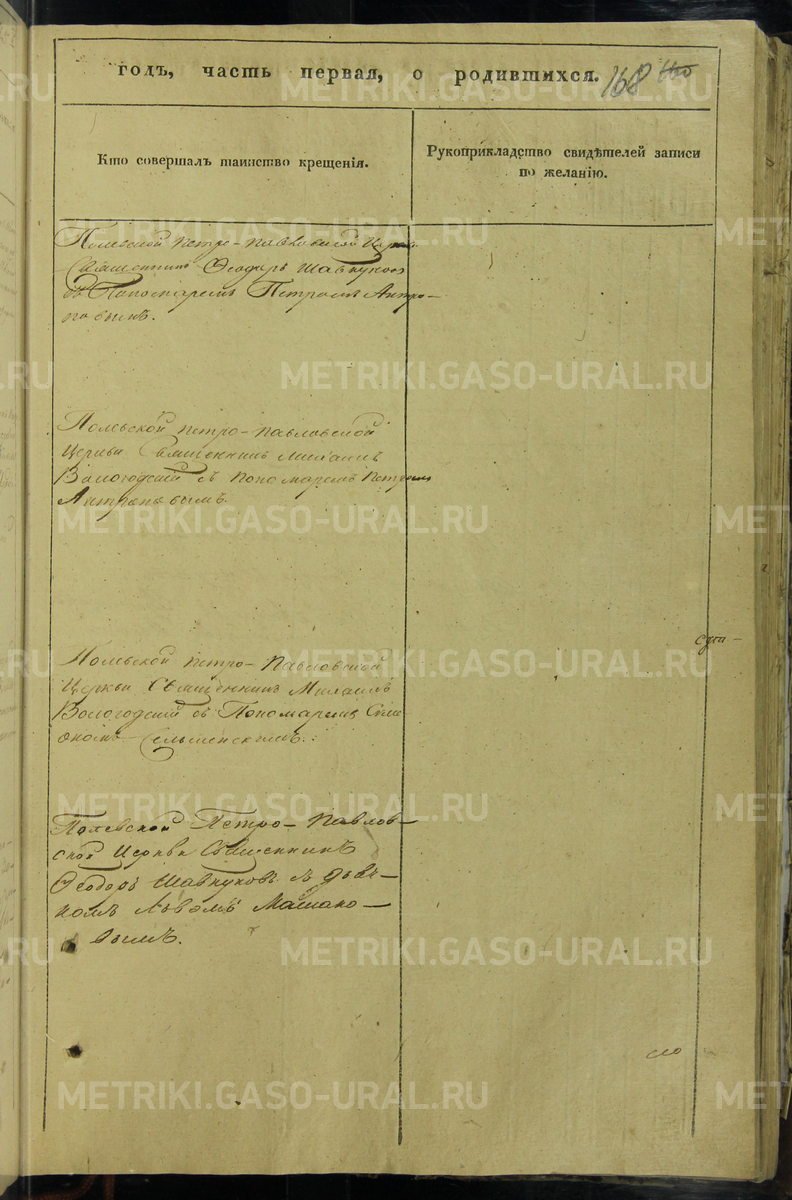 годъ, часть первая, о родившихся. 168
Кто совершалъ таинство крещенія.
Рукоприкладство свидѣтелей записи
по желанію.
Полевской Петро-Павловской Церкв.
Священникъ Ѳеодоръ Шавкуновъ
съ Пономаремъ Петромъ Антро-
повымъ.
Полевской Петро-Павловской
Церкви Священникъ Михаилъ
Вологодский съ Пономаремъ Петромъ
Антроповымъ.
Полевской Петро-Павловской
Церкви Священникъ Михаилъ
Вологодский съ Пономаремъ Симе-
ономъ
Полевской Петро-Павлов-
ской Церкви Священникъ
Ѳеодоръ Шавкуновъ съ дьяч-
комъ Львомъ
вымъ.
METRIKI.GASO-URAL.RU